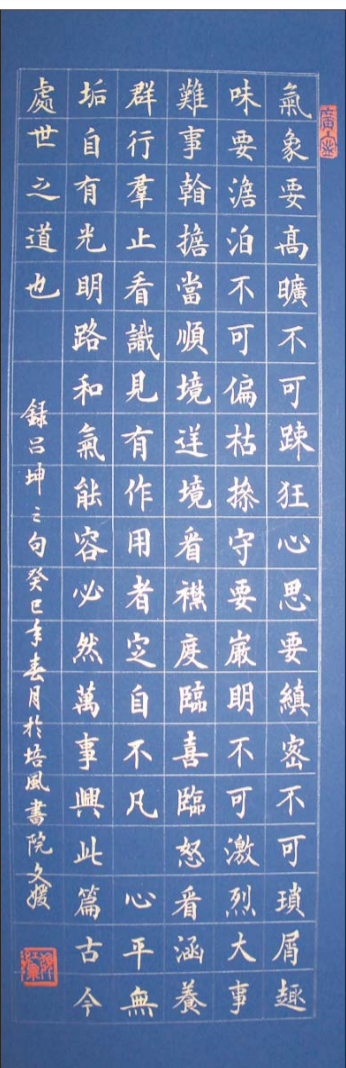 氣象要高曠不可踈狂心思要縝密不可瑣屑趣
味要澹泊不可偏枯操守要嚴明不可激烈大事
難事斡擔當順境逆境看襟度臨喜臨怒看涵養
群行羣止看識見有作用者定自不凡 心平無
垢自有光明路和氣能容必然萬事興此篇古今
處世之道也
録吕坤之句癸巳年春月於培風書院文媛